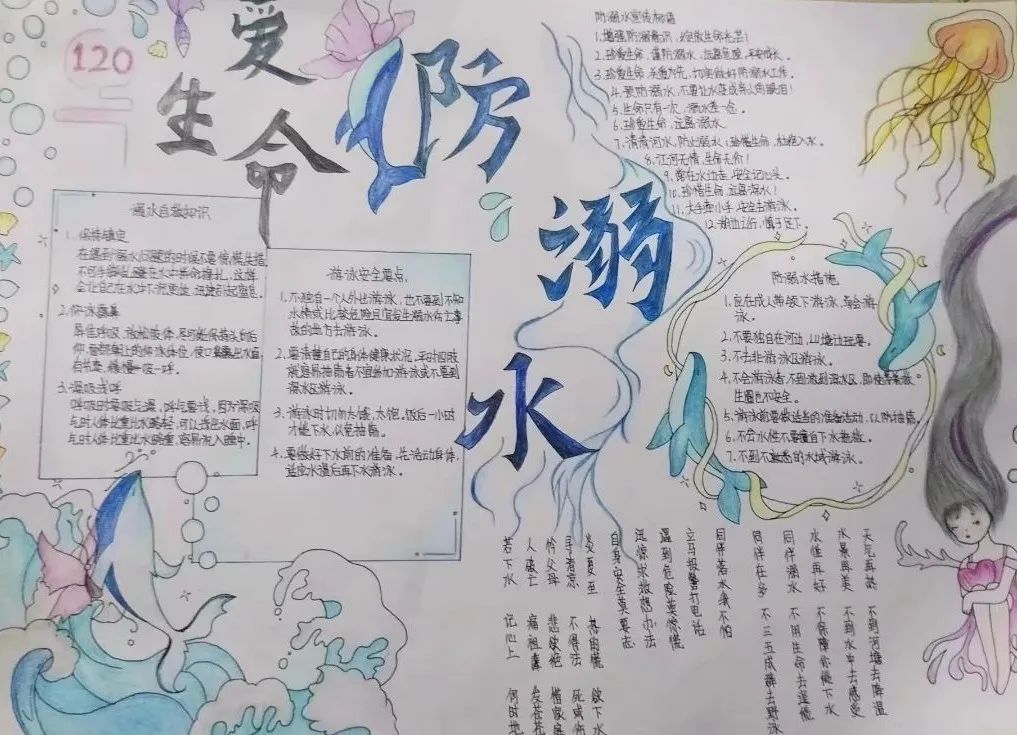 120
爱
生命
防溺水
防溺水宣传标语
1.增强防溺意识,绽放生命光芒!
2.珍爱生命,谨防溺水,远离危险,平安成长。
3.珍爱生命,关爱为先,切实做好防溺水工作。
4.预防溺水,不要让水变成亲人的眼泪!
5.生命只有一次,溺水
6.珍爱生命,远离溺水
7.清清河水,防止溺水;珍惜生命,杜绝入水。
8.江河无情,生命无价!
9.常在水边走,安全记心头。
10.珍惜生命,远离深水!
11.大手牵小手,安全去游泳。
12.湖边止行,慎于足下。
溺水自救知识
1.保持镇定
在遇到溺水问题的时候不要惊慌失措,
不可手脚乱蹬在水中拼命挣扎,这样
会让自己在水中下沉更快,迅速引起窒息。
2.仰泳露鼻
屏住呼吸,放松肢体,尽可能保持头向后
仰,
有节奏,缓慢一吸一呼。
3.深吸浅呼
呼吸时要吸气深,呼气要浅,因为深吸
气时人体比重比水略轻,可以浮出水面,呼
气时人体比重比水略重,容易沉入睡中。
游泳安全要点。
1.不独自一个人外出游泳,也不要到不知
水情或比较危险且宜发生溺水伤亡事
故的地方去游泳。
2.要清楚自己的身体健康状况,平时四肢
就容易抽筋者不宜参加游泳或不要到
深水区游泳。
3.游泳时切勿太饿、太饱,饭后一小时
才能下水,以免抽筋。
4.要做好下水前的准备,先活动身体,
适应水温后再下水游泳。
防溺水措施
1.应在成人带领下游泳,学会游
泳。
2.不要独自在河边、山塘边玩耍。
3.不去非游泳区游泳。
4.不会游泳者,不到游到深水区,即使带着救
生圈也不安全。
5.游泳前要做适当的准备活动,以防抽筋。
6.不会水性不要擅自下水施救。
7.不到不熟悉的水域游泳。
天气再热 不到河塘去降温
水景再美 不到水中去感受
水性再好 不保障你便下水
同伴溺水 不用生命去逞能
同伴在多 不三五成群去野泳
同伴落水我不怕
立马报警打电话
遇到危险莫惊慌
沉惊求救想办法
自身安全莫要忘
炎夏至 甚的慌 欲下水
寻清凉 不得法 死或伤
怜父母 悲欲绝
人破亡 痛祖康
若下水 记心上 何时地